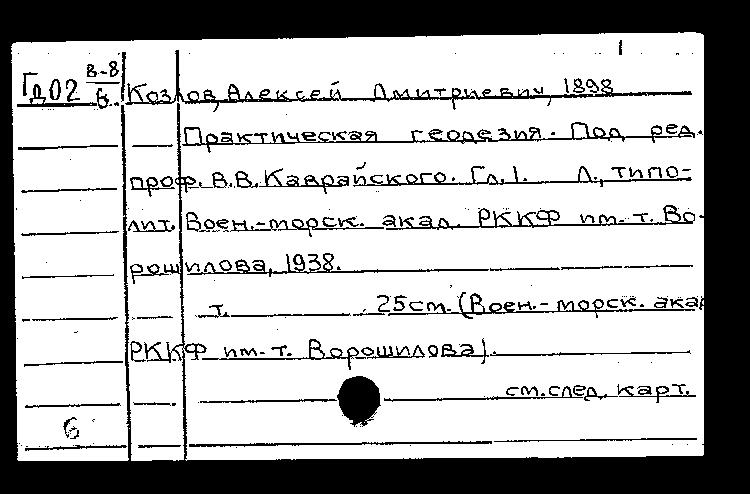 1
Гд02 в-8/6 Козлов, Алексей Дмитриевич, 1898
Практическая геодезия. Под ред.
проф. В.В. Каврайского. Гл. 1. Л., типо-
лит. Воен.-морск. акад. РККФ им. т. Во-
рошилова, 1938.
т. 25см. (Воен.-морск. акад
РККФ им. т. Ворошилова).
см. след. карт.
6